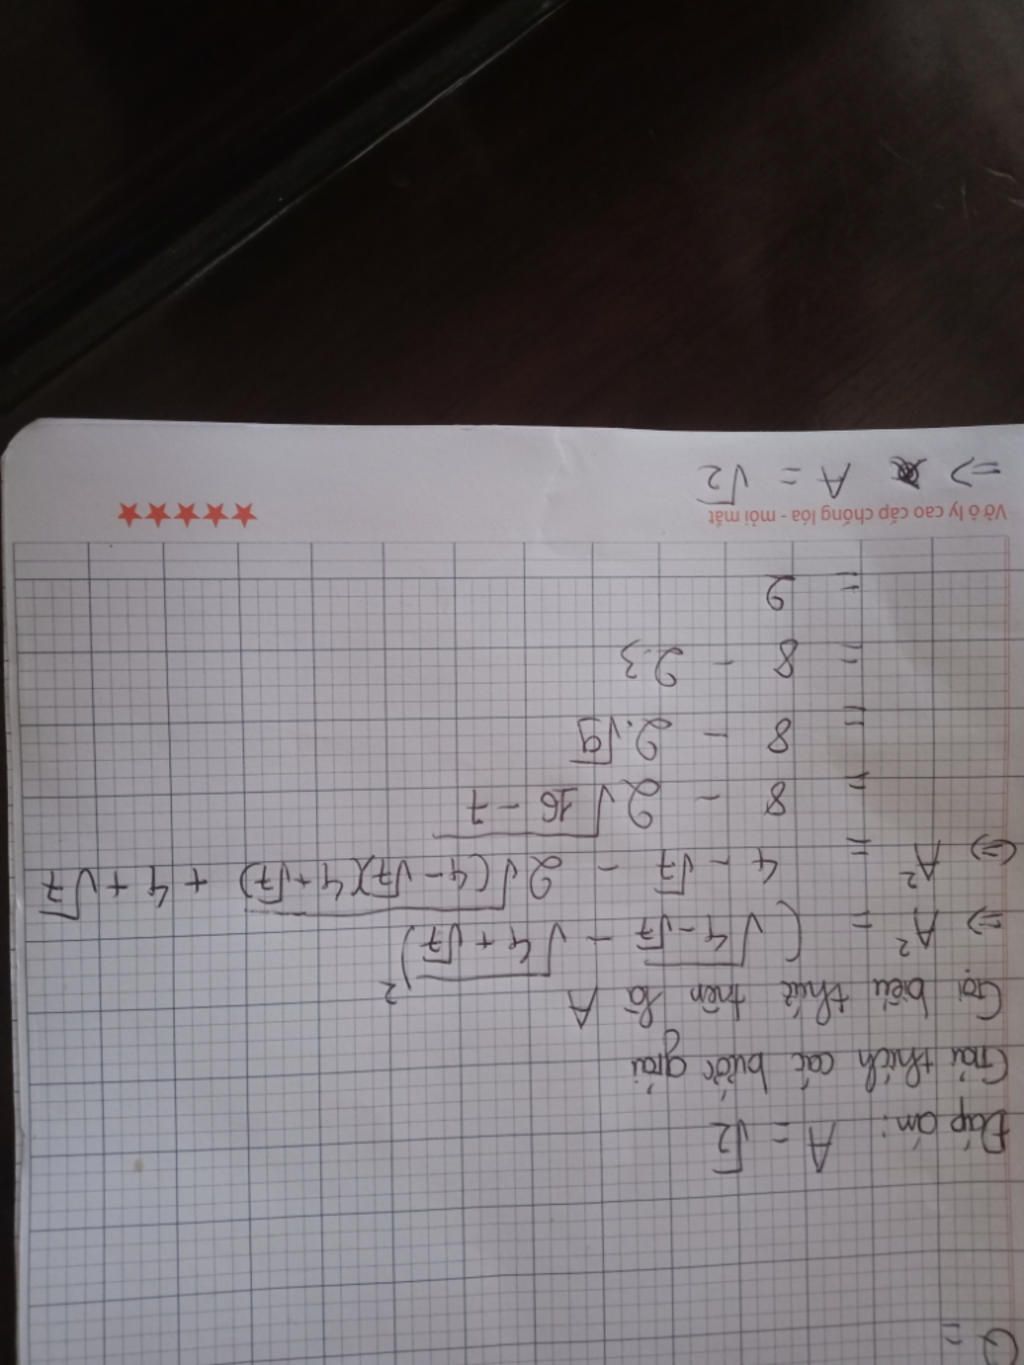 Q =
Đáp án: A = √2
Giải thích các bước giải
Gọi biểu thức trên là A
=> A² = (√(4-√7) - √(4+√7))²
<=> A² = 4 - √7 - 2√((4-√7)(4+√7)) + 4 + √7
= 8 - 2√(16-7)
= 8 - 2.√9
= 8 - 2.3
= 2
Vở ô ly cao cấp chống lóa - mỏi mắt ★★★★★
=> A = √2